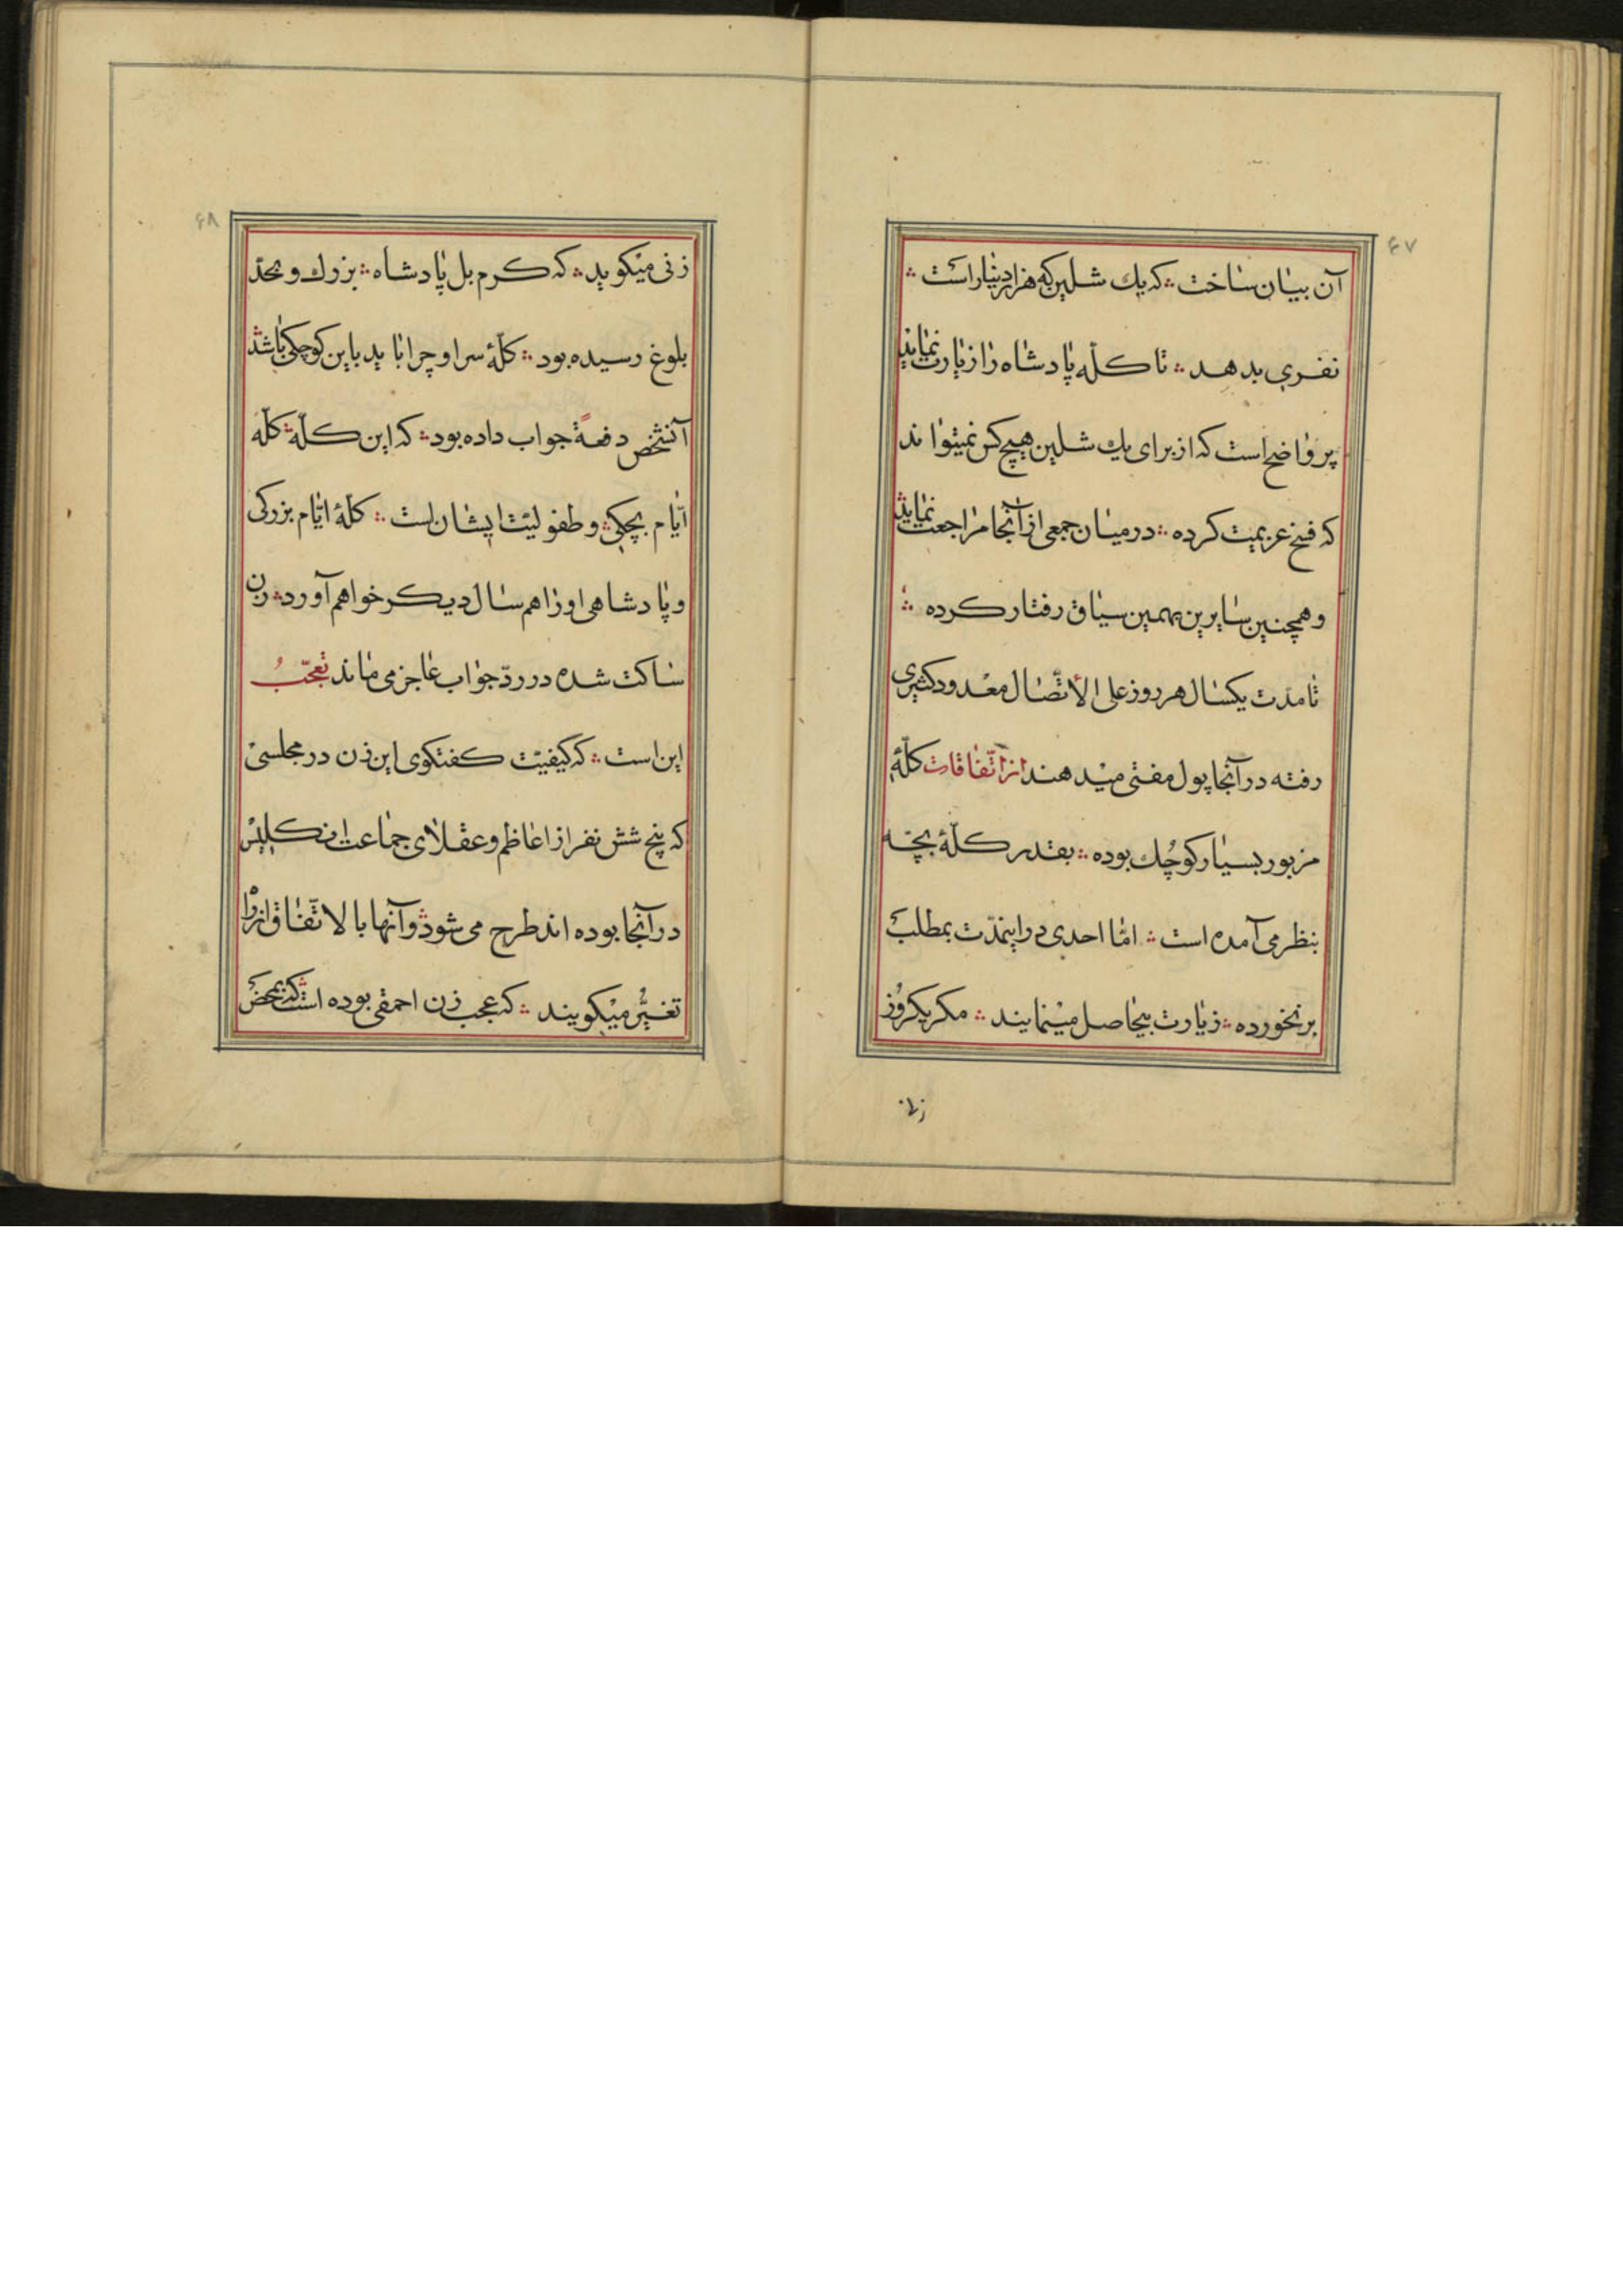 ۶۷
آن بیان ساخت ؞ که یك شلین که هزار دینار است ؞
نفری بدهد ؞ تا کلّه پادشاه را زیارت نمایند
پر واضح است که از برای یك شلین هیچ کس نمیتواند
که فسخ عزیمت کرده ؞ در میان جمعی از آنجا مراجعت نماید
و همچنین سایرین بهمین سیاق رفتار کرده ؞
تا مدّت یکسال هر روز علی الأتّصال معدود کثیری
رفته در آنجا پول مفتی میدهند از اتّفاقات کلّهٔ
مزبور بسیار کوچُك بوده ؞ بقدر کلّهٔ بچّه
بنظر می آمده است ؞ امّا احدی در اینمدّت بمطلب
بر نخورده ؞ زیارت بیحاصل مینمایند ؞ مکر یکروز
زنی
۶۸
زنی میکوید ؞ که کرم بل پادشاه ؞ بزرك و بحدّ
بلوغ رسیده بود ؞ کلّهٔ سر او چرا باید باین کوچکی باشد ؞
آنشخص دفعةً جواب داده بود ؞ که این کلّه ؞ کلّه
ایّام بچکی ؞ و طفولیّت ایشان است ؞ کلّهٔ ایّام بزرکی
و پادشاهی او را هم سال دیکر خواهم آورد ؞ زن
ساکت شده در ردّ جواب عاجز می ماند تعجّبُ
این است ؞ که کیفیّت کفتکوی این زن در مجلسی
که پنج شش نفر از اعاظم و عقلای جماعت انکلیس
در آنجا بوده اند طرح می شود ؞ و آنها بالاتّفاق از را
تغیُّر میکویند ؞ که عجب زن احمقی بوده است ؞ که بمحض